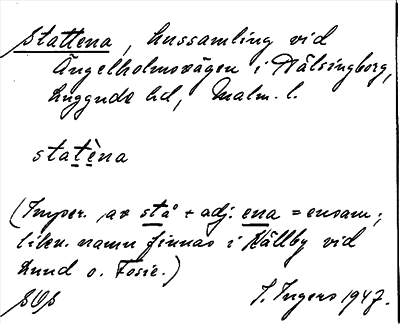 Stattena, hussamling vid
Ängelholmsvägen i Hälsingborg,
Luggude hd, Malm. l.
statèna
(Imper. av stå + adj. ena = ensam;
likn. namn finnas i Källby vid
Lund o. Fosie.)
SOS I. Ingers 1947.